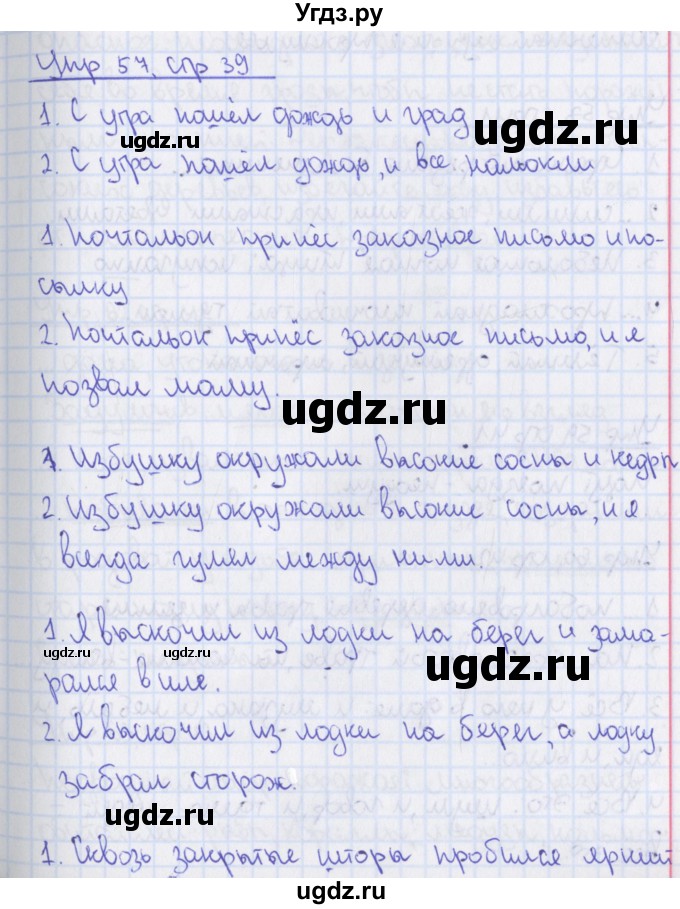 Угдз.ру
Упр 57, стр 39
1. С утра пошёл дождь и град
ugdz.ru ugdz.ru
2. С утра пошёл дождь, и все намокли
1. Почтальон принёс заказное письмо и по-
сылку
2. Почтальон принёс заказное письмо, и я
позвал маму.
ugdz.ru
1. Избушку окружали высокие сосны и кедры
2. Избушку окружали высокие сосны, и я
всегда гулял между ними.
1. Я выскочил из лодки на берег и зама-
ugdz.ru ugdz.ru ugdz.ru
рался в иле.
2. Я выскочил из лодки на берег, а лодку
забрал сторож.
ugdz.ru
1. Сквозь закрытые шторы пробился яркий
ugdz.ru